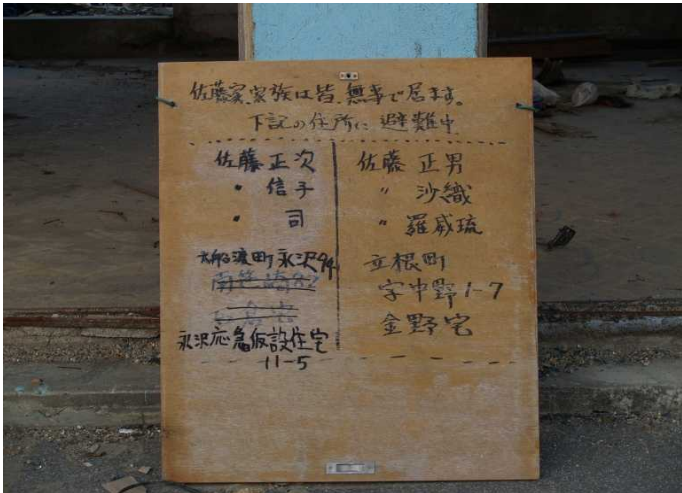 佐藤実、家族は皆、無事で居ます。
下記の住所に避難中
佐藤 正次
〃 信子
〃 司
大船渡町永沢94
永沢応急仮設住宅
11-5
佐藤 正男
〃 沙織
〃 羅威琉
立根町
字中野1-7
金野宅